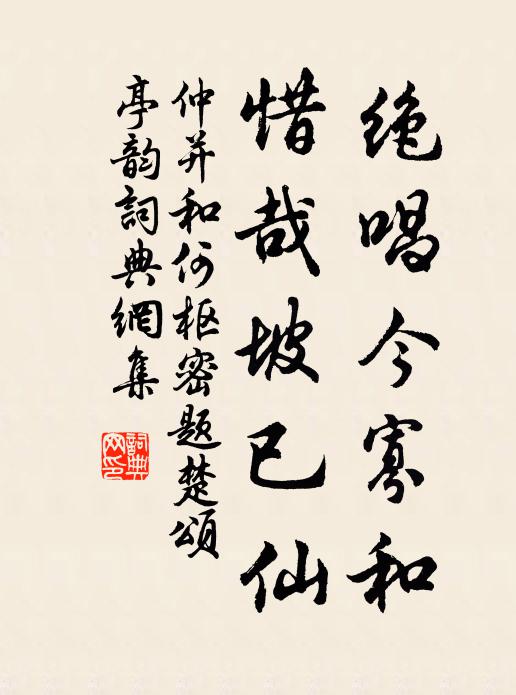 绝唱今寡和
惜哉坡已仙
仲并和何枢密题楚颂
亭韵词典網集
詞典網印